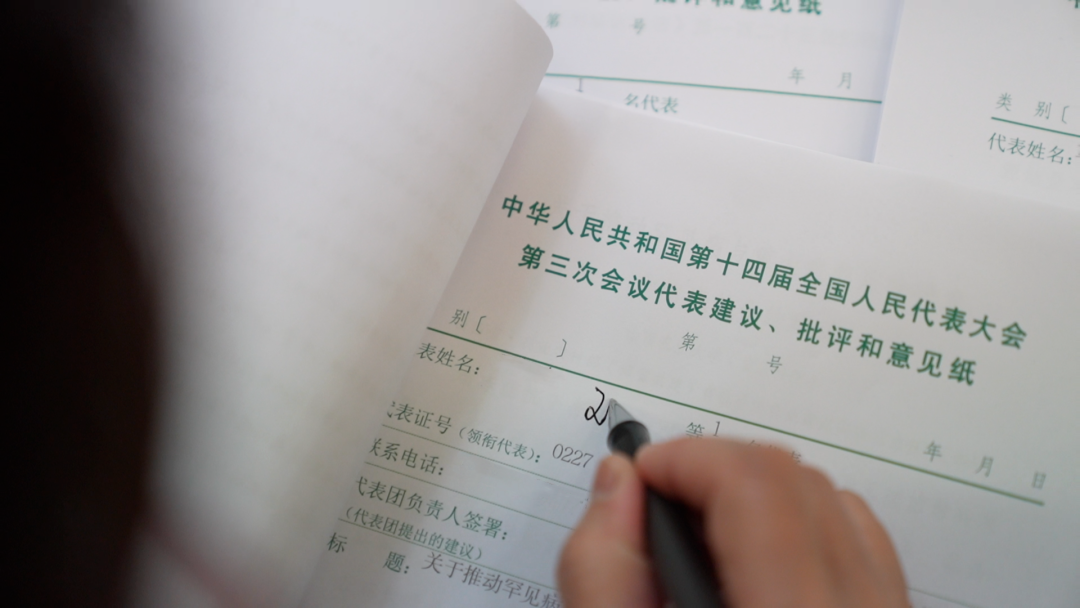 批评和意见纸
第 号
年 月
1
名代表
类 别[
代表姓名:
中华人民共和国第十四届全国人民代表大会
第三次会议代表建议、批评和意见纸
别[ ] 第 号
表姓名: 等1 年 月 日
代表证号(领衔代表): 0227
联系电话:
代表团负责人签署:
(代表团提出的建议)
标 题: 关于推动罕见病